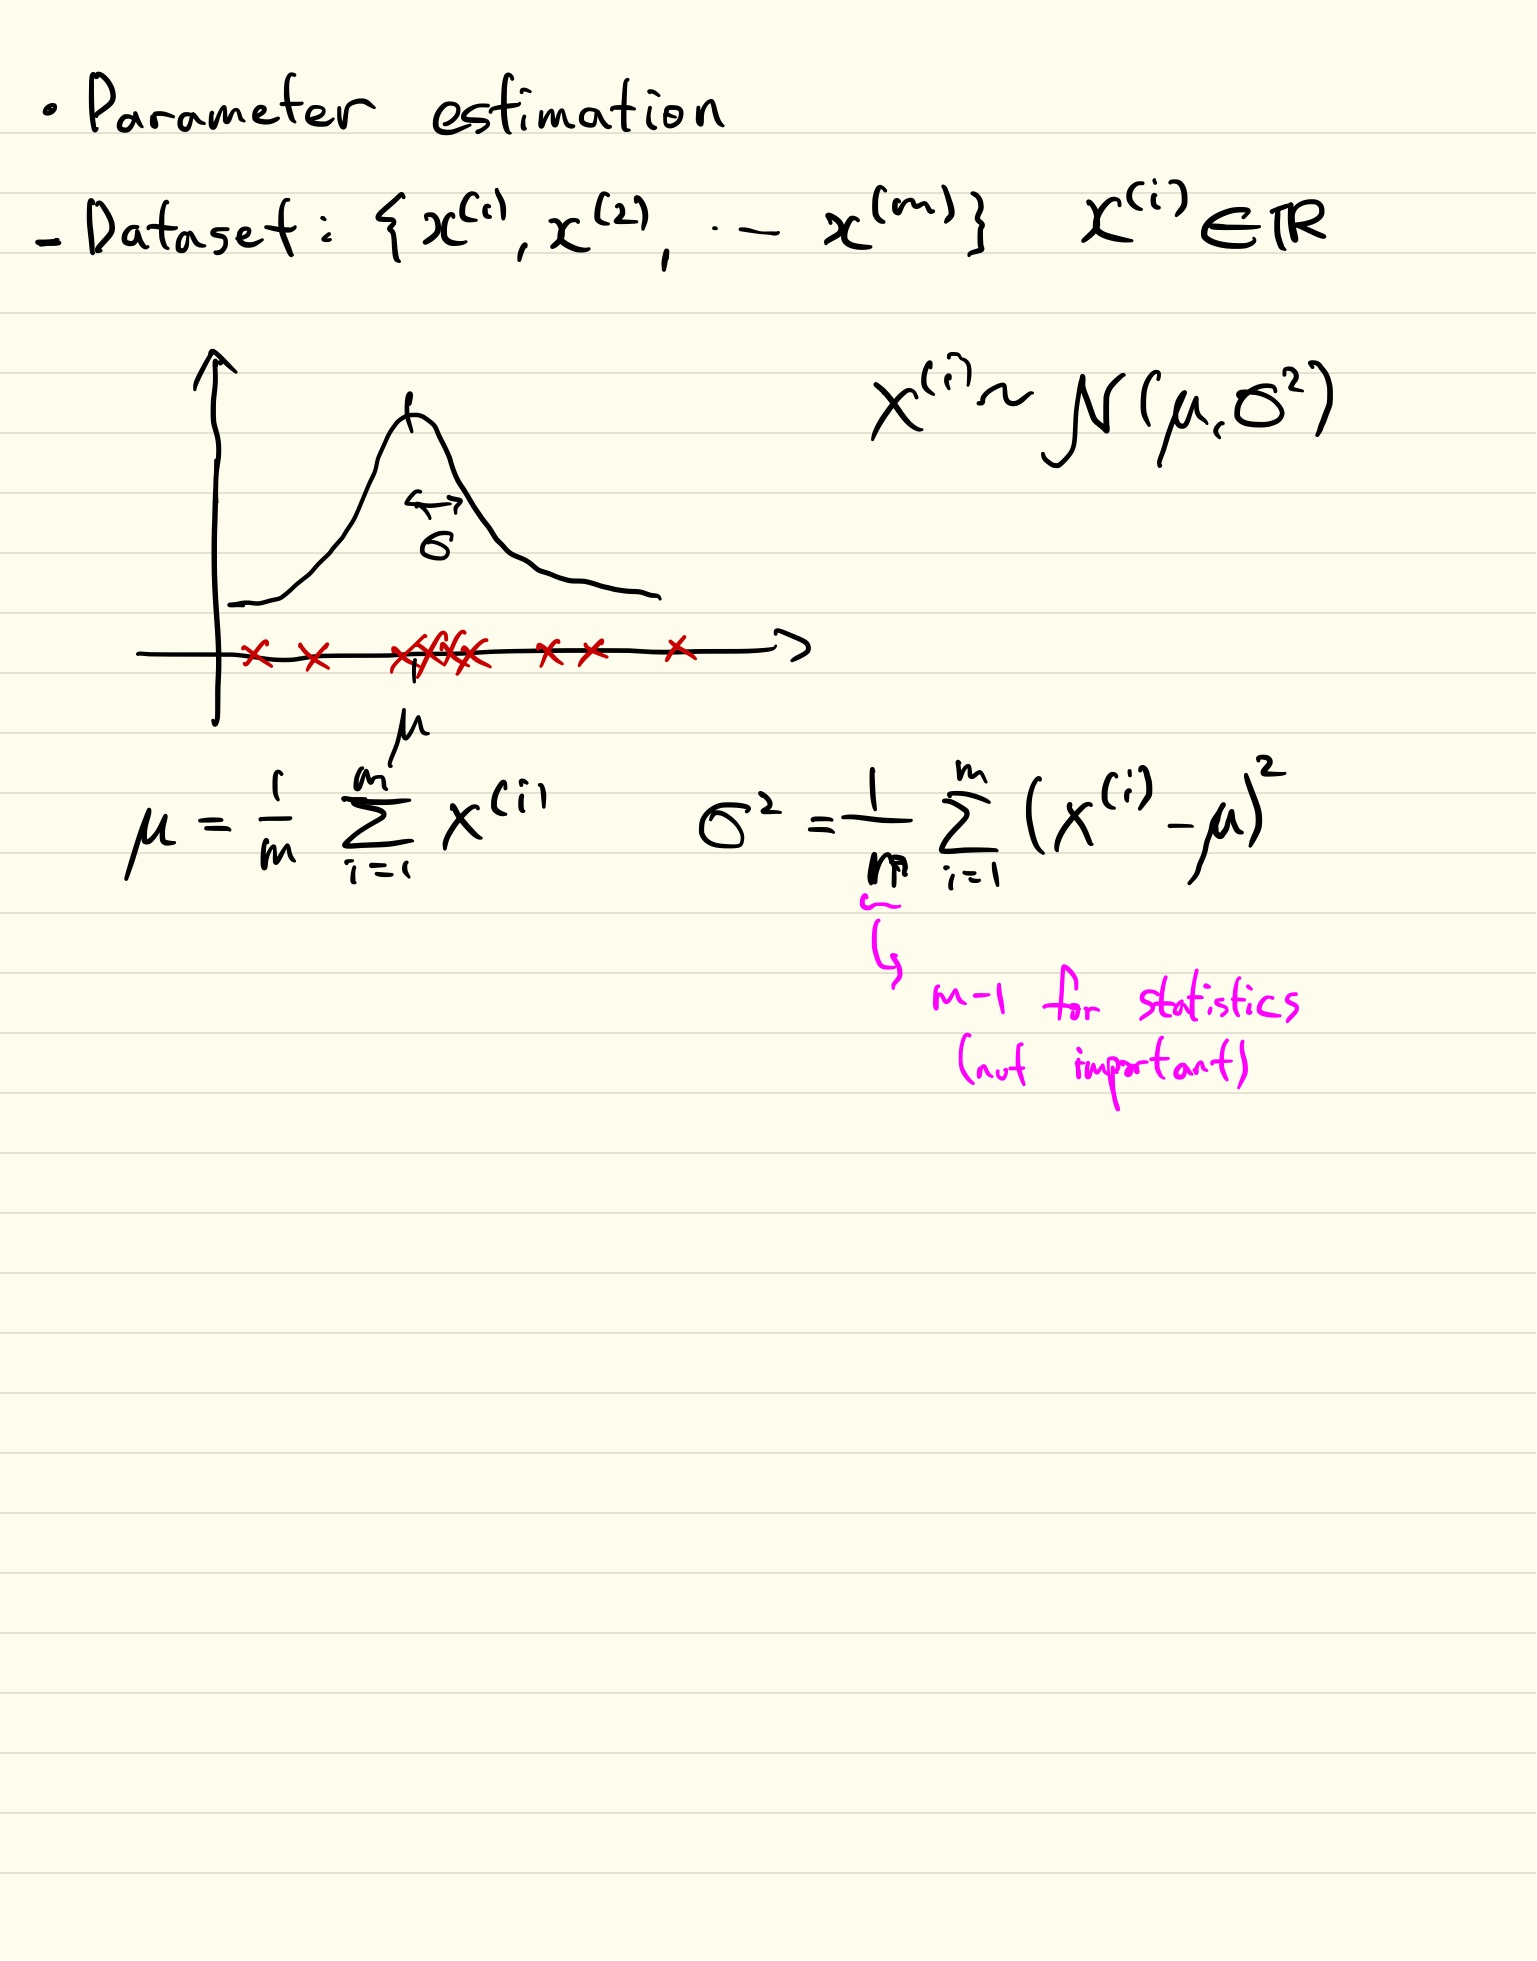 • Parameter estimation
- Dataset : { x^(1), x^(2), ·— x^(m) }   x^(i) ∈ ℝ
x^(i) ~ N(μ, σ²)
σ
μ
μ = 1/m Σ_{i=1}^{m} x^(i)   σ² = 1/m Σ_{i=1}^{m} (x^(i) - μ)²
m-1 for statistics
(not important)